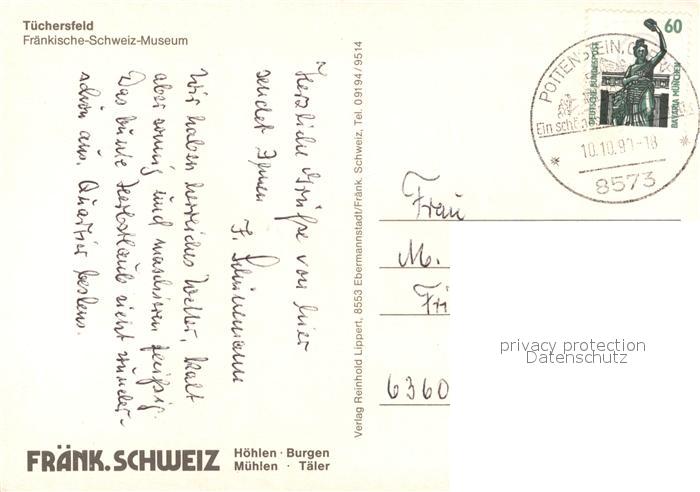 Tüchersfeld
Fränkische-Schweiz-Museum
Herzliche Grüße von hier
sendet Ihnen
Wir haben herrliches Wetter, kalt
aber sonnig und marschieren fleißig.
Das bunte Herbstlaub sieht wunder-
schön aus. Quartier bestens.
FRÄNK. SCHWEIZ
Höhlen · Burgen
Mühlen · Täler
Verlag Reinhold Lippert, 8553 Ebermannstadt/Fränk. Schweiz, Tel. 09194/9514
60
DEUTSCHE BUNDESPOST
BAVARIA MÜNCHEN
POTTENSTEIN,
Ein schö
10.10.90-18
8573
Frau
M.
6360
privacy protection
Datenschutz